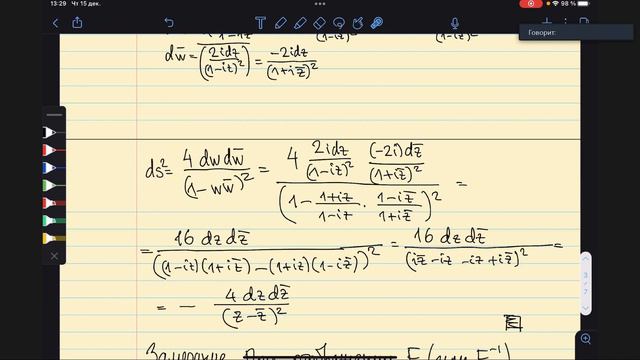 13:29 Чт 15 дек.
Говорит:
dw̄ = (2idz/(1-iz)²)‾ = -2idz̄/(1+iz̄)²
ds² = 4 dw dw̄/(1-ww̄)² = 4 2idz/(1-iz)² (-2i)dz̄/(1+iz̄)² / (1 - 1+iz/1-iz · 1-iz̄/1+iz̄)² =
= 16 dz dz̄/((1-iz)(1+iz̄) - (1+iz)(1-iz̄))² = 16 dz dz̄/(iz̄ - iz - iz + iz̄)² =
= - 4 dz dz̄/(z - z̄)²
3 / 7
Замечание F (или F⁻¹)